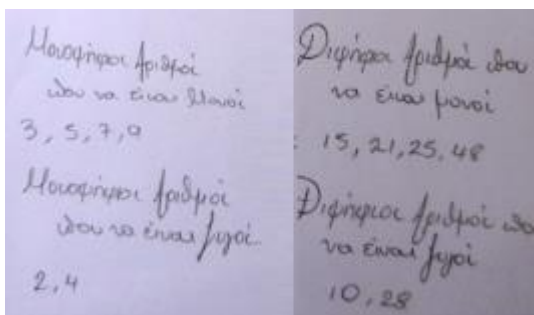 Μονοψήφιοι αριθμοί
που να είναι Μονοί
3, 5, 7, 9
Μονοψήφιοι αριθμοί
που να είναι ζυγοί.
2, 4
Διψήφιοι αριθμοί που
να είναι μονοί
15, 21, 25, 48
Διψήφιοι αριθμοί που
να είναι ζυγοί
10, 28